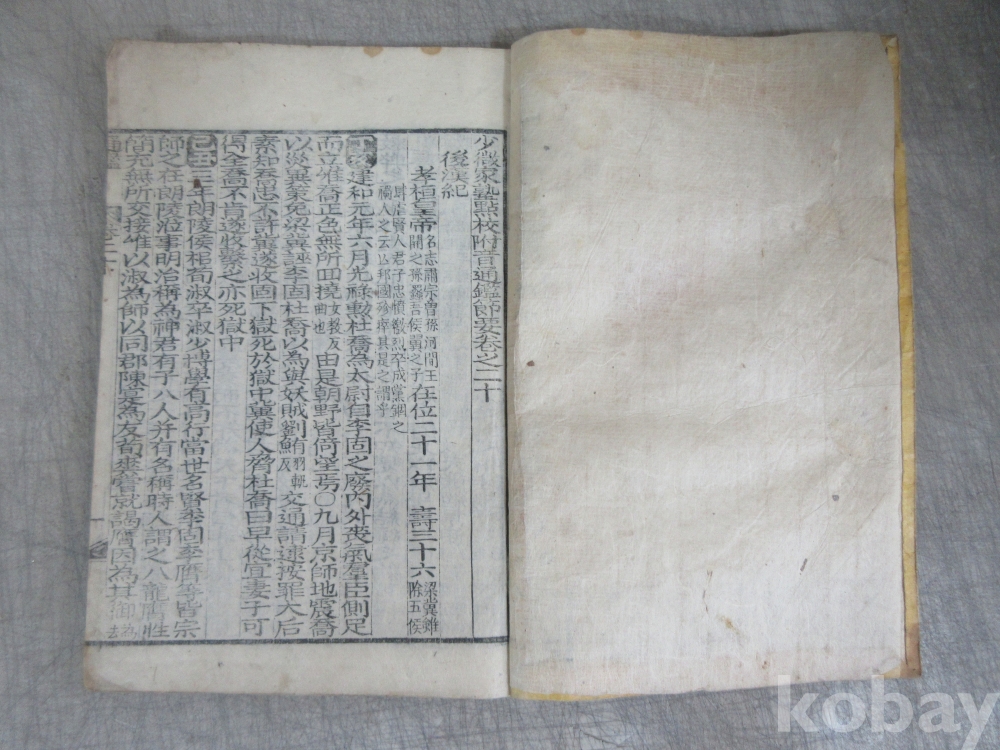 少微家塾點校附音通鑑節要卷之二十
後漢紀
孝桓皇帝 名志肅宗曾孫河間王開之孫蠡吾侯翼之子 在位二十一年 壽三十六 梁冀雖除五侯
肆虐賢人君子忠憤激烈卒成黨錮之
禍人之云亡邦國殄瘁其是之謂乎
丁亥建和元年六月光祿勳杜喬為太尉自李固之廢內外喪氣羣臣側足
而立唯喬正色無所回撓 女敎反曲也 由是朝野皆倚望焉○九月京師地震喬
以災異策免梁冀誣李固杜喬以為與妖賊劉鮪 羽軌反 交通請逮按罪太后
素知喬忠不許冀遂收固下獄死於獄中冀使人脅杜喬曰早從宜妻子可
得全喬不肯遂收繫之亦死獄中
己丑三年朗陵侯相荀淑卒淑少博學有高行當世名賢李固李膺等皆宗
師之在朗陵涖事明治稱為神君有子八人并有名稱時人謂之八龍膺性
簡亢無所交接唯以淑為師以同郡陳寔為友荀爽嘗就謁膺因為其御 為去
通鑑
kobay